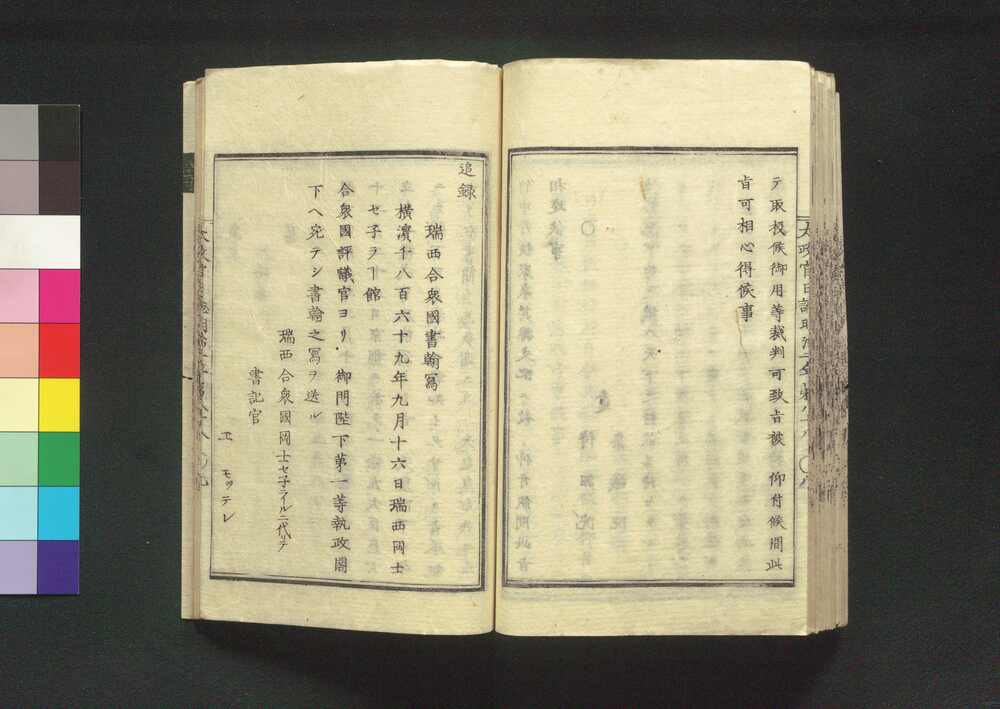 テ取扱候御用等裁判可致旨被　仰付候間此
旨可相心得候事
太政官日誌明治二年
追録
瑞西合衆國書翰寫
横濱千八百六十九年九月十六日瑞西岡士
十セ子ラール館
合衆國評議官ヨリ御門陛下第一等執政閣
下ヘ宛テシ書翰之寫ヲ送ル
瑞西合衆國岡士セ子ラール二代リテ
書記官
エ　モッテレ